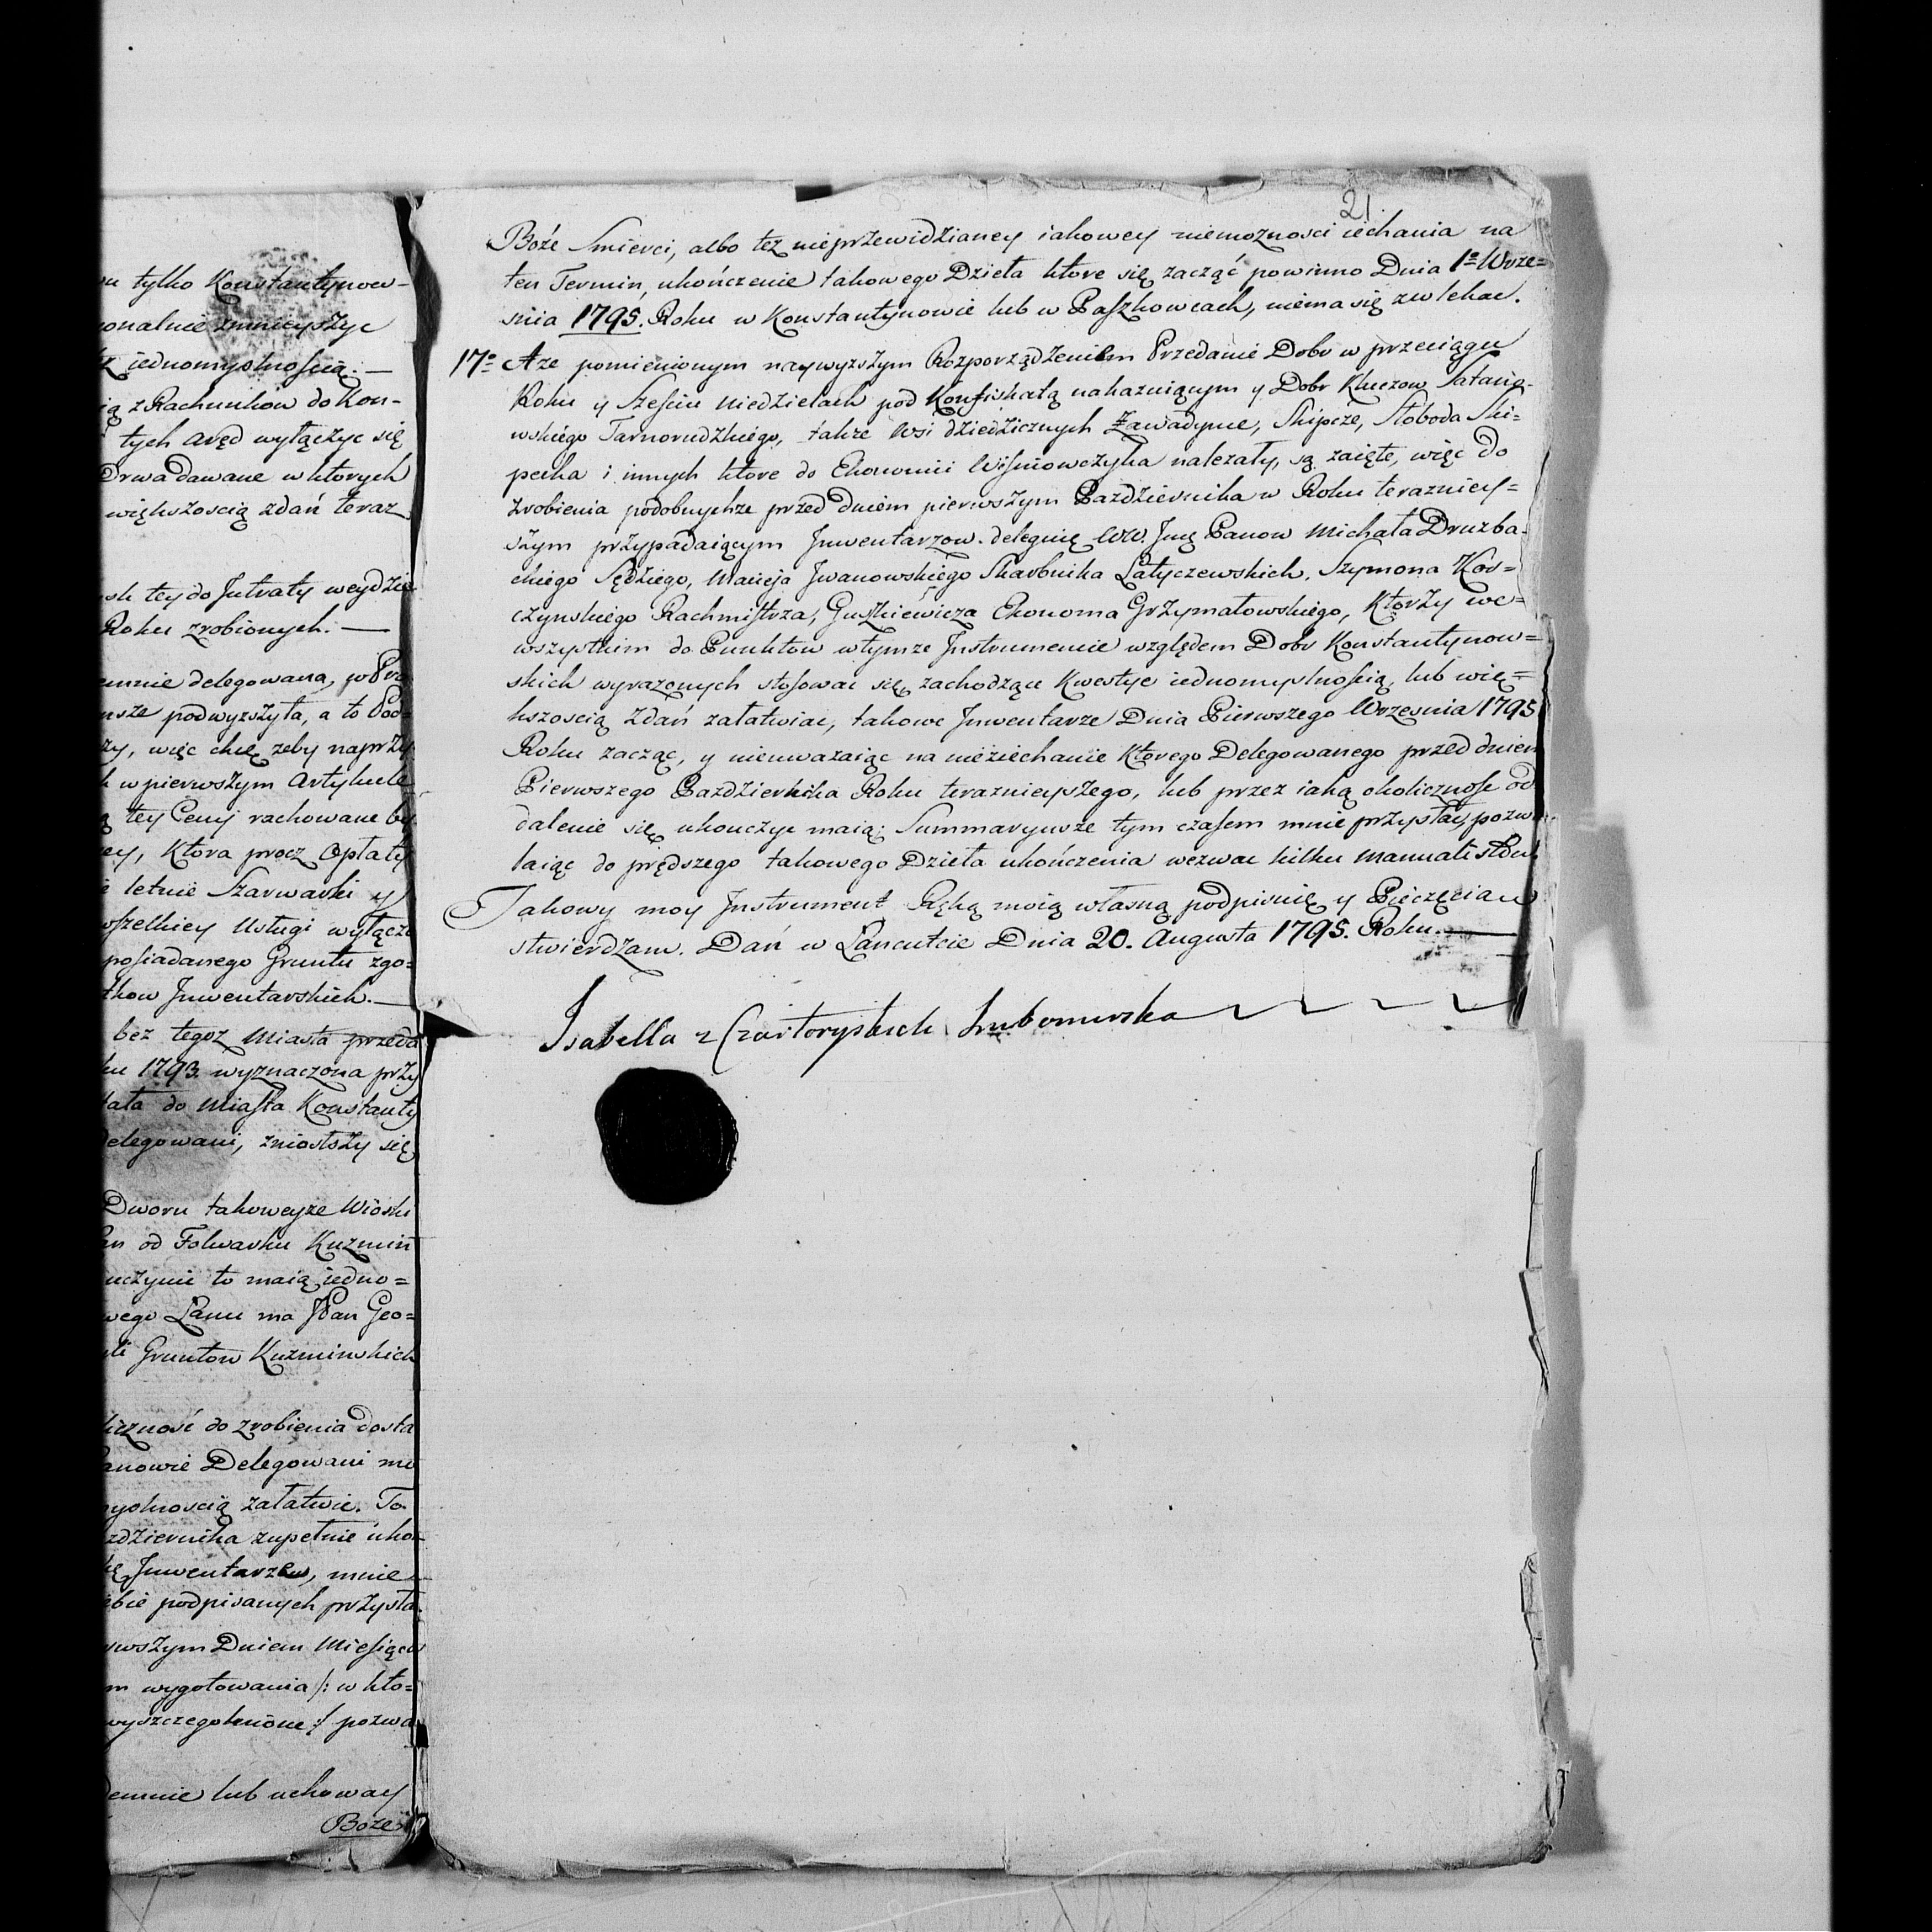 u tylko Konstantynow-
onalnie zmnieyszyc
z iednomyslnoscią. —
ią z Rachunkow do Kon-
tych aręd wyłączyc się
Drwa dawane w ktorych
większoscią zdań teraz
sk tey do Jntraty weydzie
Roku zrobionych. —
emnie delegowana, w Pra
nsze podwyzszyła, a to Pod=
zy, więc chcę zeby naprzy
h w pierwszym Artykule
ą tey Ceny rachowane by
ey, Ktora procz Opłaty
letnie Szarwarki y
wszelkiey Usługi wyłącz
posiadanego Gruntu zgo=
tkow Jnwentarskich. —
bez tegoz Miasta przeda
ku 1793. wyznaczona przy
łata do Miasta Konstanty
Delegowani, zniosłszy się
Dworu takoweyze Wioski
an od Folwarku Kuzmin
uczynie to maią iedno=
wego Łanu ma JPan Geo=
li Gruntow Kuzminskich
liczność do zrobienia dosta
anowie Delegowani me
myslnoscią załatwic. To
zdziernika zupełnie uko
Jnwentarzow, mnie
ebie podpisanych przysła
rwszym Dniem Miesiąca
m wygotowania /: w kto=
wyszczegolnione :/ pozwa
demnie lub uchoway
Boze
21
Boże Smierci, albo tez nieprzewidzianey iakowey niemoznosci iechania na
ten Termin, ukończenie takowego Dzieła ktore się zacząć powinno Dnia 1º Wrze=
snia 1795. Roku w Konstantynowie lub w Paszkowcach, niema się zwlekac.
17º Aze pomienionym naywyzszym Rozporządzeniem Przedanie Dobr w przeciągu
Roku y Szesciu Niedzielach pod Konfiskatą nakazuiącym y Dobr Kluczow Satano-
wskiego Tarnorudzkiego, takze Wsi dziedzicznych Zawadynce, Skipcze, Słoboda Ski=
pecka i innych ktore do Ekonomii Wisniowczyka nalezały, są zaięte, więc do
zrobienia podobnychze przed dniem pierwszym Pazdziernika w Roku terazniey=
szym przypadaiącym Jnwentarzow. deleguię WW. Jmę Panow Michała Druzba-
ckiego Sędziego, Macieja Jwanowskiego Skarbnika Latyczewskich, Szymona Kor=
czynskiego Rachmistrza, Guszkiewicza Ekonoma Grzymałowskiego, Ktorzy we=
wszystkim do Punktow w tymze Jnstrumencie względem Dobr Konstantynow=
skich wyrazonych stosowac się, zachodzące Kwestye iednomyslnoscią, lub wię=
kszoscią Zdań załatwiac, takowe Jnwentarze Dnia Pierwszego Wrzesnia 1795
Roku zacząc, y nieuwazaiąc na nieziechanie Ktorego Delegowanego przed dniem
Pierwszego Pazdziernika Roku teraznieyszego, lub przez iaką okolicznosc od
dalenie się, ukonczyc maią; Summaryusze tym czasem mnie przysłac, pozwa
laiąc do prędszego takowego Dzieła ukończenia wezwac kilku Manualistow.
Takowy moy Jnstrument Ręką moią własną podpisuię y Pieczęcian
stwierdzam. Dań w Łancutcie Dnia 20. Augusta 1795. Roku. —
Isabella z Czartoryskich Lubomirska